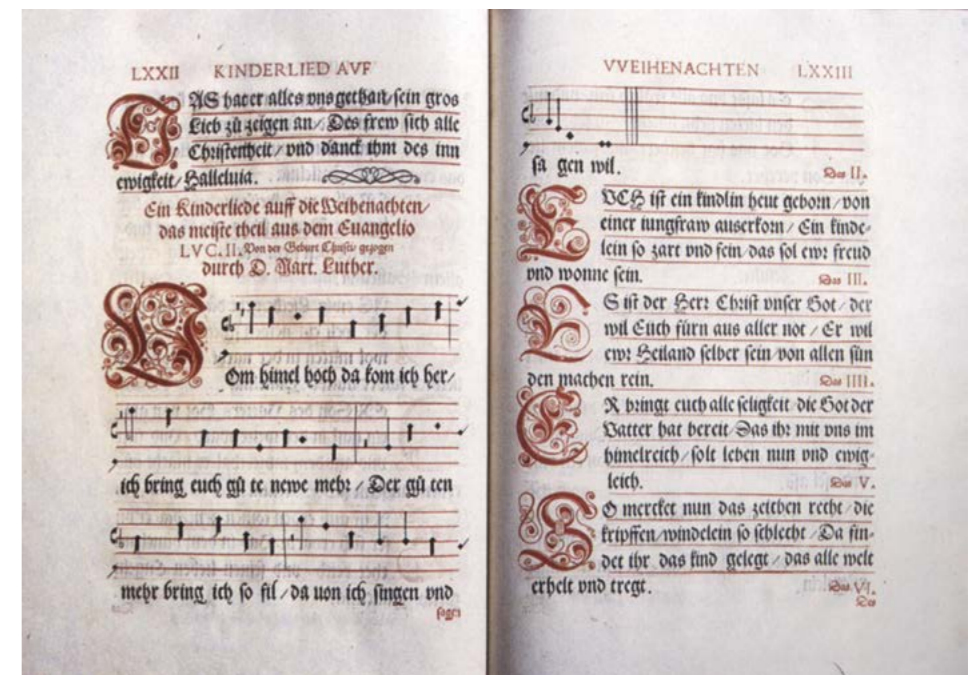 LXXII KINDERLIED AVF
DAS hat er alles vns gethan/sein gros
Lieb zů zeigen an/Des frew sich alle
Christenheit/vnd danck ihm des inn
ewigkeit/Halleluia.
Ein Kinderliede auff die Weihenachten/
das meiste theil aus dem Euangelio
LVC.II. Von der Geburt Christi/ gezogen
durch D. Mart. Luther.
VOm himel hoch da kom ich her/
ich bring euch gů te newe mehr/Der gů ten
mehr bring ich so fil/da uon ich singen vnd
sagen
VVEIHENACHTEN LXXIII
sa gen wil.
Das II.
EVCH ist ein kindlin heut geborn/von
einer iungfraw auserkorn/Ein kinde-
lein so zart vnd fein/das sol ewr freud
vnd wonne sein. Das III.
ES ist der Herr Christ vnser Got/der
wil Euch fürn aus aller not/Er wil
ewr Heiland selber sein/von allen sün
den machen rein. Das IIII.
ER bringt euch alle seligkeit/die Got der
Vatter hat bereit/Das ihr mit vns im
himelreich/solt leben nun vnd ewig-
leich. Das V.
SO mercket nun das zeichen recht/die
kripffen/windelein so schlecht/Da fin-
det ihr das kind gelegt/das alle welt
erhelt vnd tregt. Das VI.